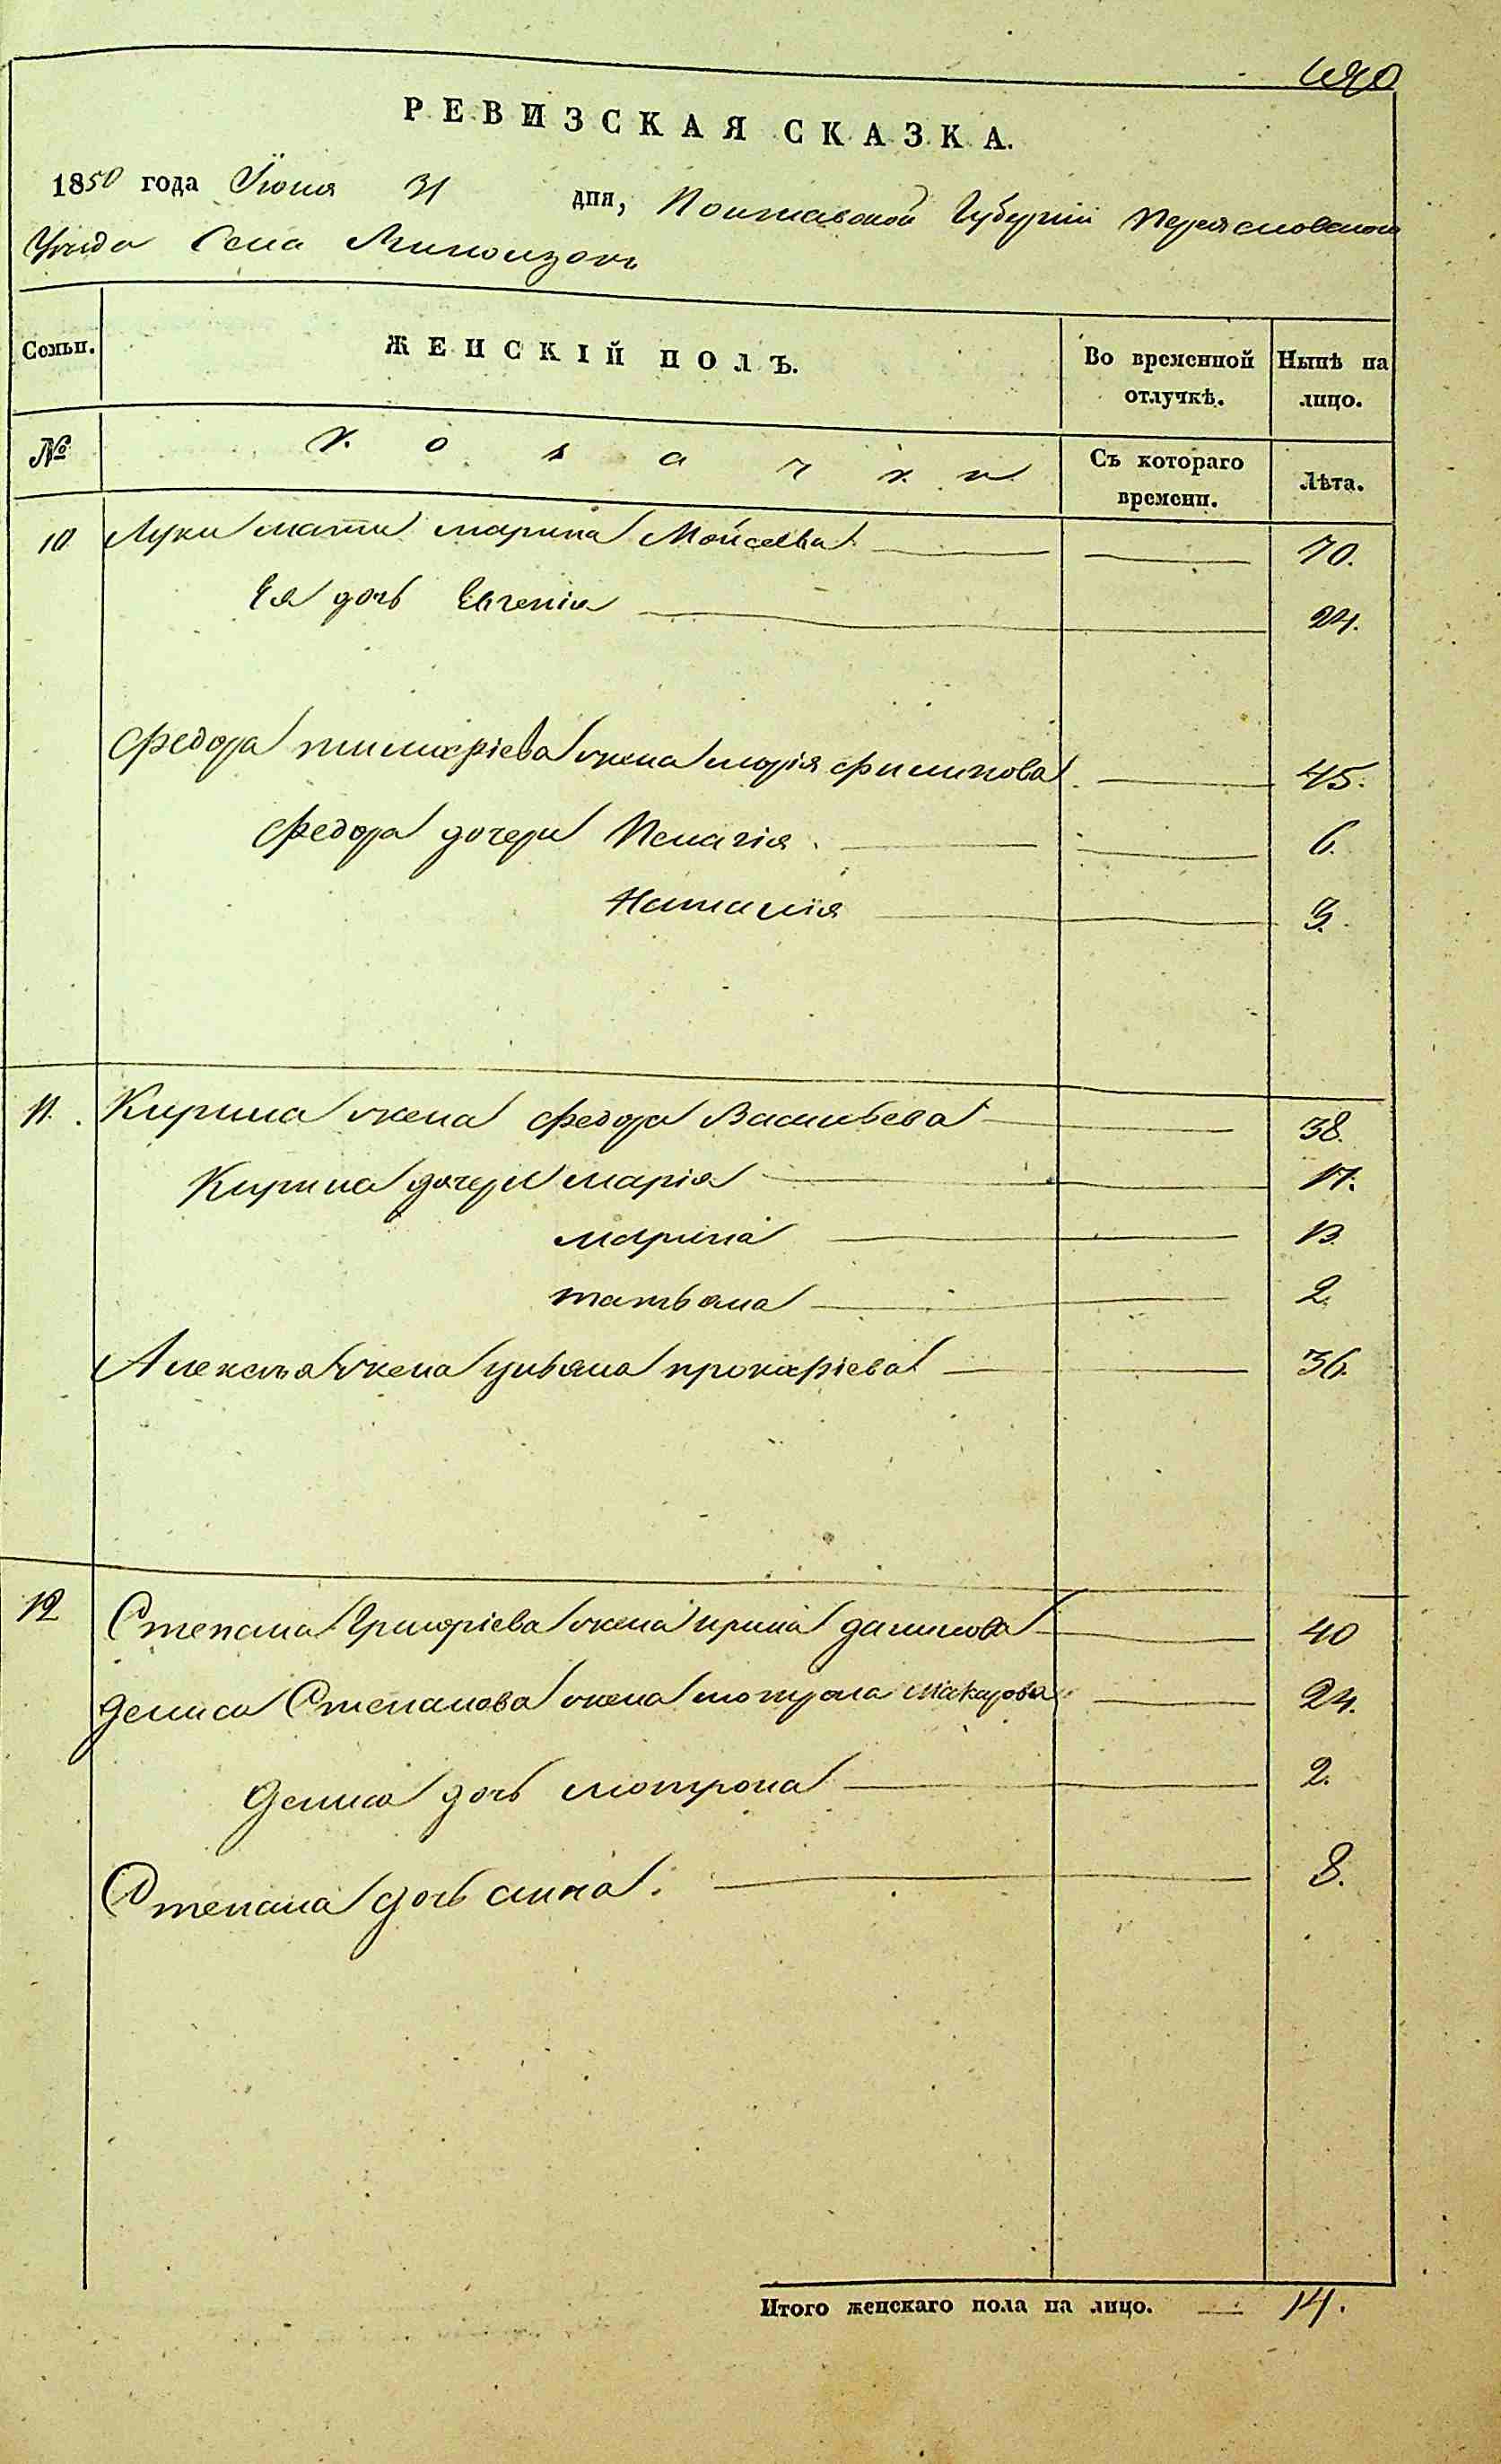 РЕВИЗСКАЯ СКАЗКА.
1850 года Іюня 31 дня, Полтавской Губерніи Переясловскаго
Уѣзда Села
Семьи. ЖЕНСКІЙ ПОЛЪ. Во временной отлучкѣ. Нынѣ на лицо.
№ Козачки Съ котораго времени. Лѣта.
10 Луки мати марина Мойсеева 70.
Ея дочь Евгенія 24.
Федора жена марія филипова 45.
Федора дочери Пелагія 6.
Наталія 3.
11. Кирила жена Федора Васильева 38.
Кирила дочери марія 17.
марина 13.
татьяна 2.
Алексѣя жена ульяна прокофіева 36.
12 Степана Григоріева жена ирина данилова 40
Дениса Степанова жена мотрона Макарова 24.
Дениса дочь мотрона 2.
Степана дочь анна. 8.
Итого женскаго пола на лицо. 14.